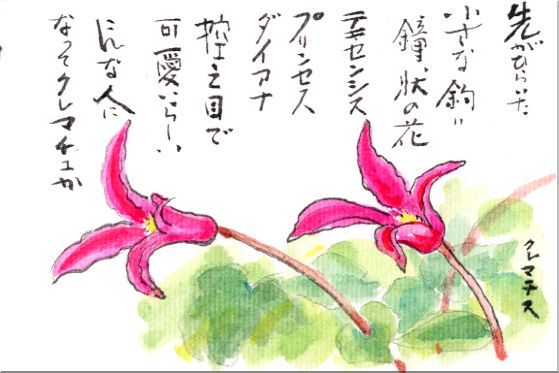 先がひらいた
小さな釣り
鐘状の花
テキセンシス
プリンセス
ダイアナ
控え目で
可愛いらしい
こんな人に
なってクレマチュか
クレマチス